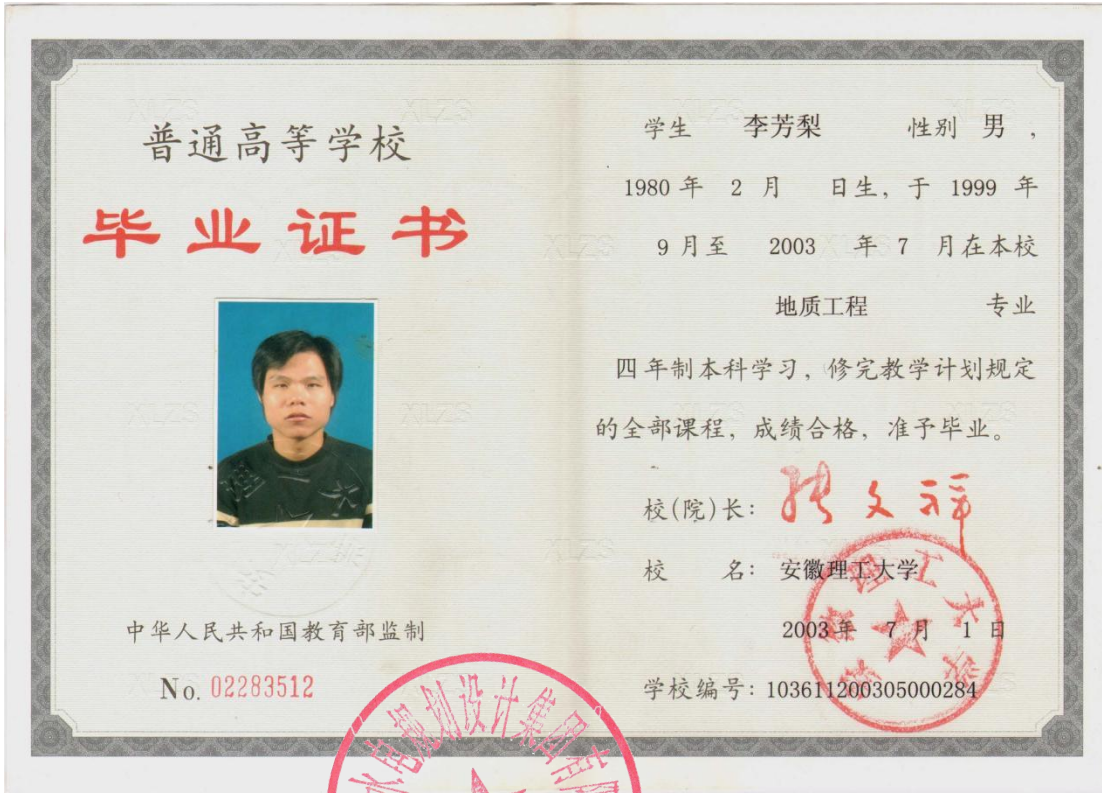 普通高等学校
毕业证书
中华人民共和国教育部监制
No. 02283512
学生 李芳梨 性别 男 ,
1980 年 2 月 日生, 于 1999 年
9 月至 2003 年 7 月在本校
地质工程 专业
四年制本科学习, 修完教学计划规定
的全部课程, 成绩合格, 准予毕业。
校(院)长: 张文祥
校 名: 安徽理工大学
2003 年 7 月 1 日
学校编号: 103611200305000284
安徽理工大学
水电规划设计集团有限
XLZS
XLZS
XLZS
XLZS
XLZS
XLZS